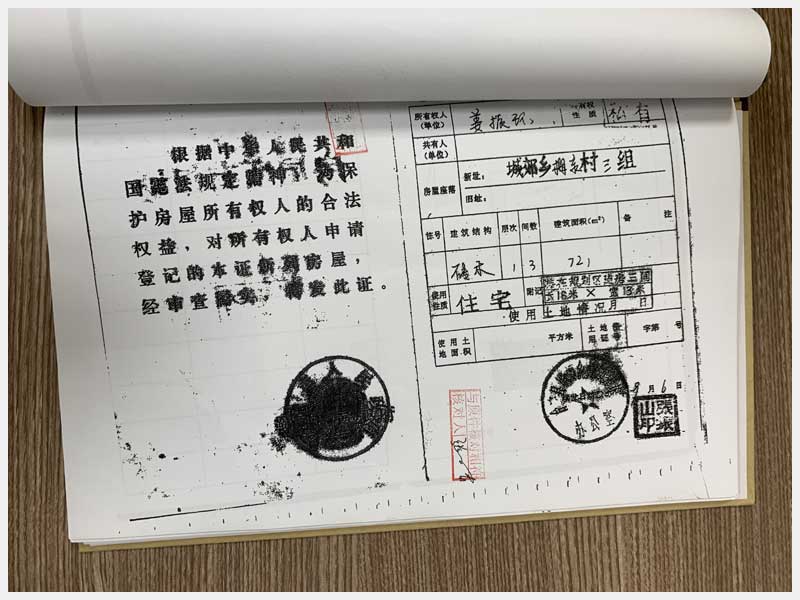 根据中华人民共和
国宪法规定精神，为保
护房屋所有权人的合法
权益，对所有权人申请
登记的本证所列房屋，
经审查属实，特发此证。
所有权人
(单位)
姜振
性质
私有
共有人
(单位)
房屋座落
新址：
城郊乡 村三组
旧址：
住号 建筑结构 层次 间数 建筑面积(m²) 备注
砖木 1 3 72
使用
性质
住宅
附记
长18米 × 宽13米
使用土地情况
使用土
地面积
平方米
土地使
用证号
字第 号
9月6日
办公室
核对人
張振
山印